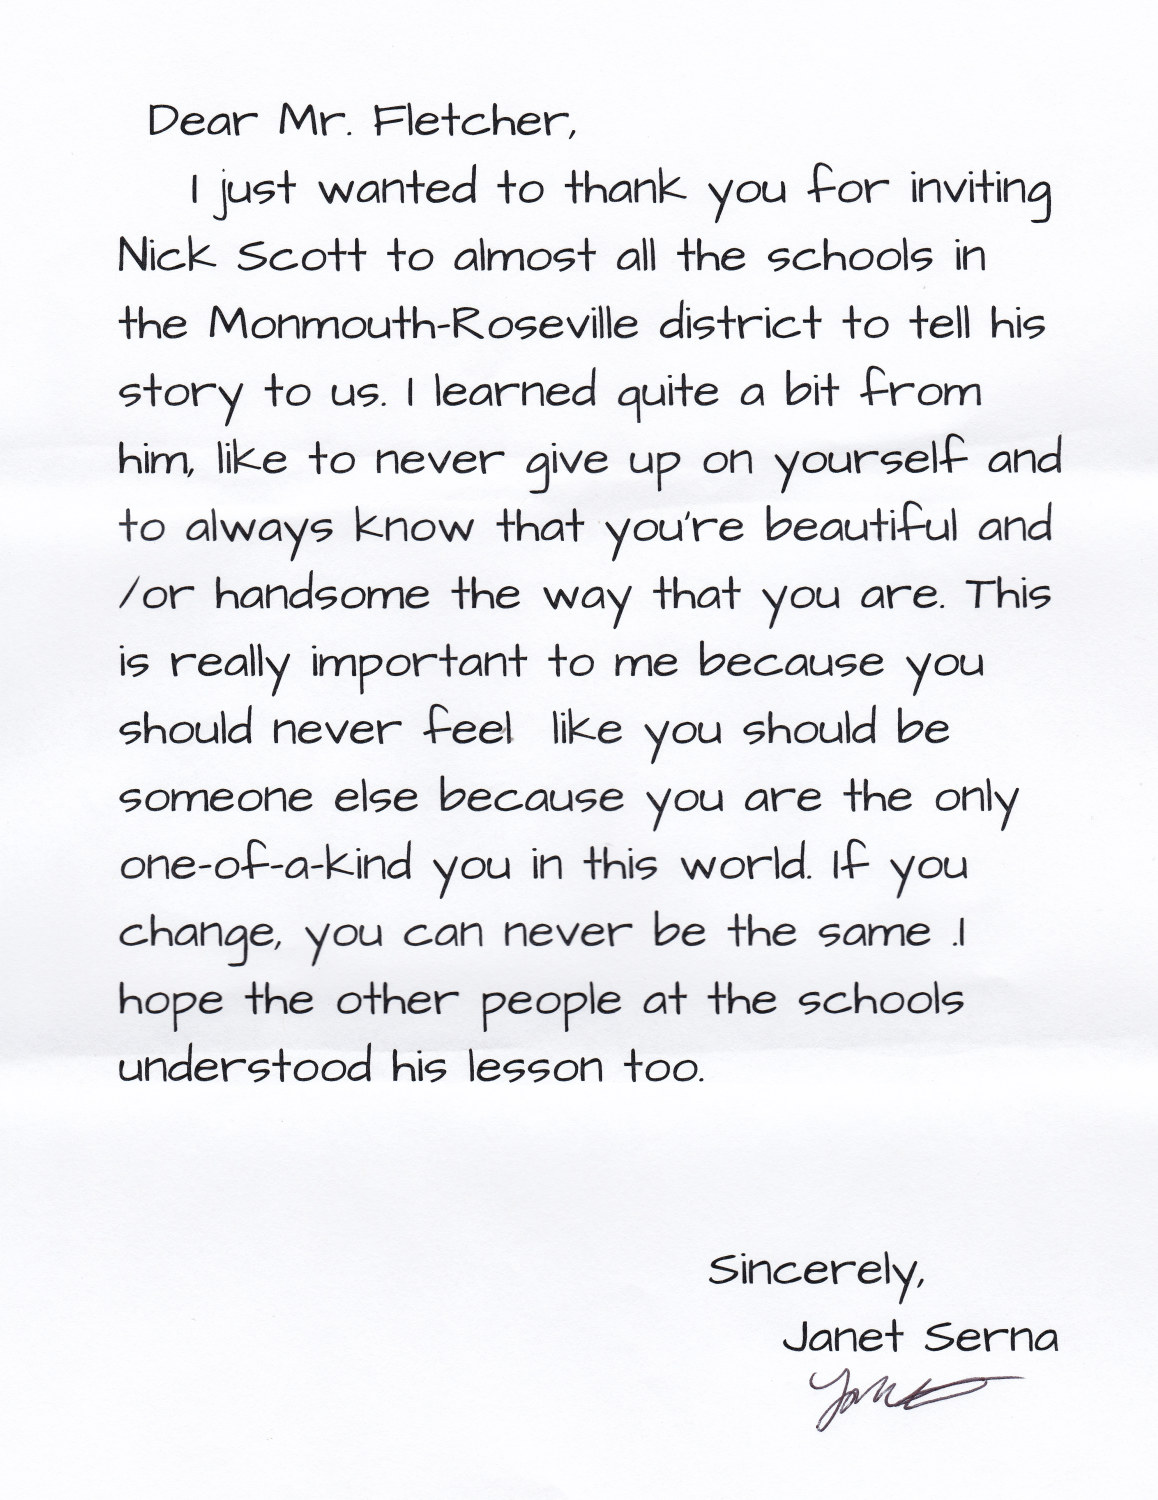 Dear Mr. Fletcher,
I just wanted to thank you for inviting
Nick Scott to almost all the schools in
the Monmouth-Roseville district to tell his
story to us. I learned quite a bit from
him, like to never give up on yourself and
to always know that you're beautiful and
/or handsome the way that you are. This
is really important to me because you
should never feel  like you should be
someone else because you are the only
one-of-a-kind you in this world. If you
change, you can never be the same .I
hope the other people at the schools
understood his lesson too.
Sincerely,
Janet Serna